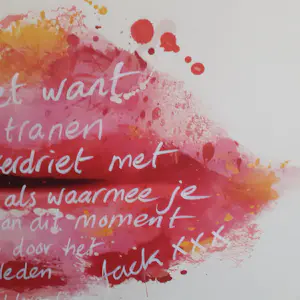 et want
tranen
erdriet met
als waarmee je
an dit moment
door het
leden Jack xxx